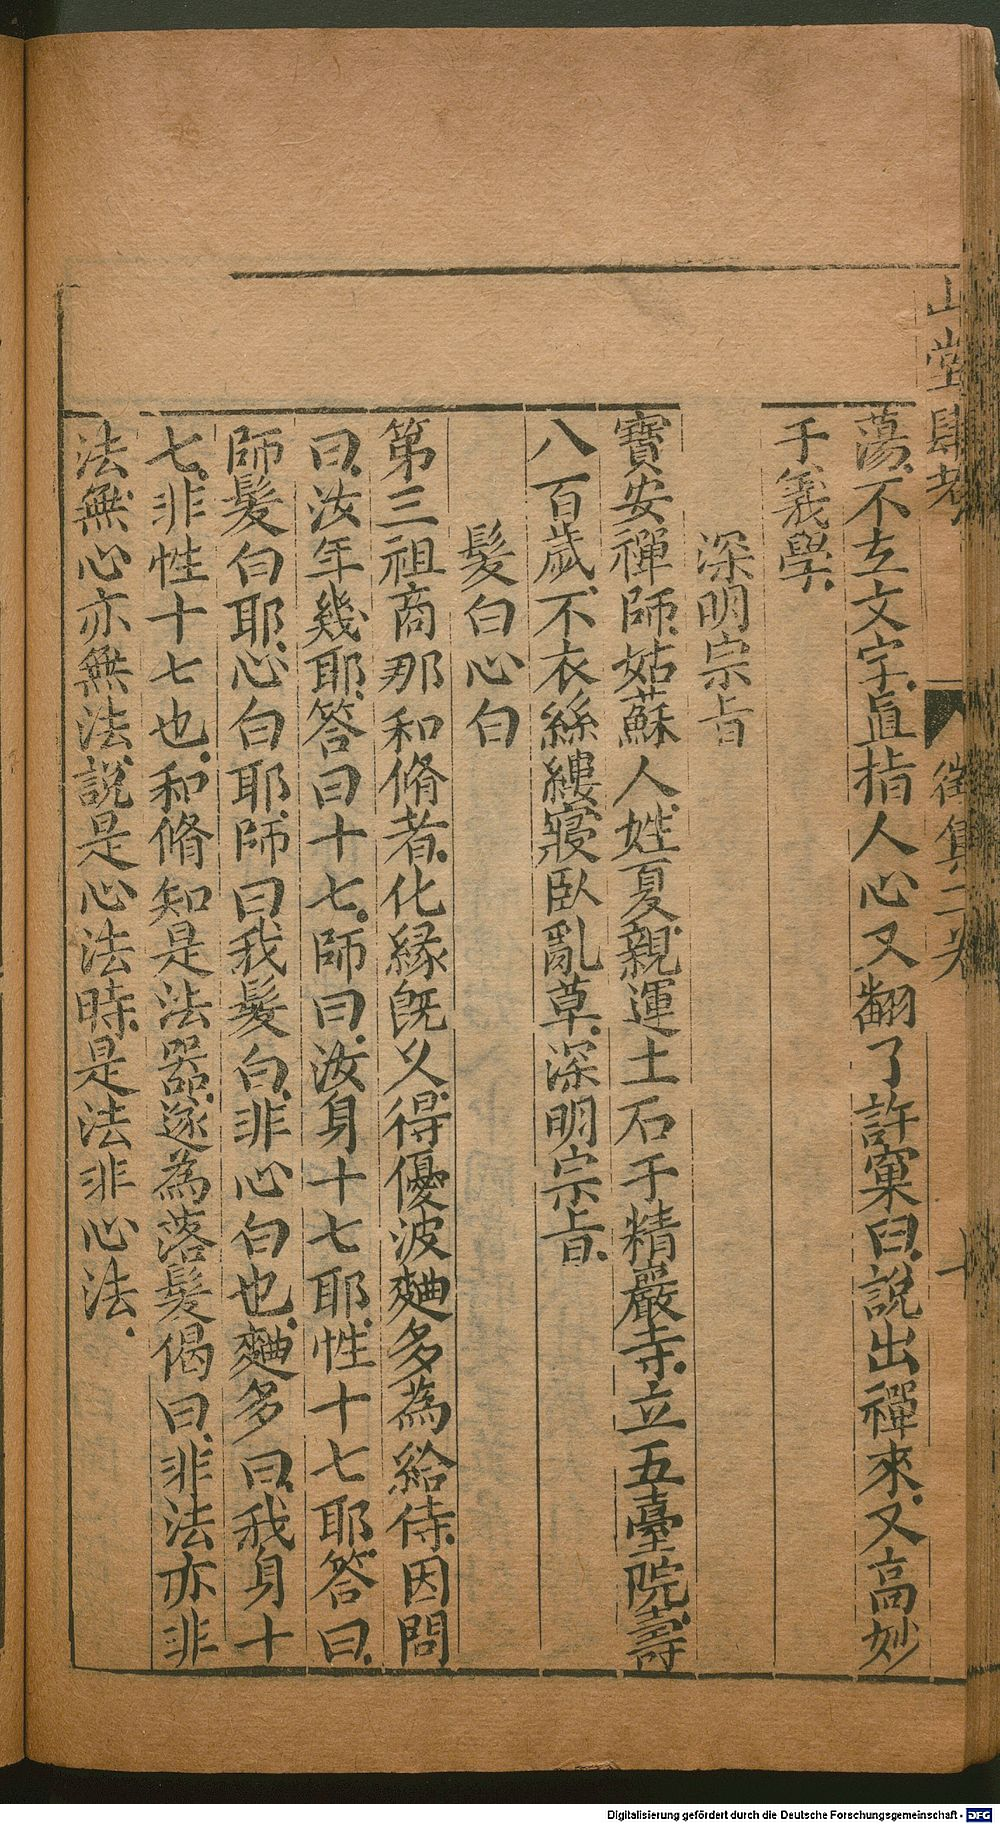 山堂肆考 徵集二卷 十
蕩、不立文字、直指人心、又翻了許窠臼、說出禪來、又高妙
于義學、
深明宗旨
寶安禪師、姑蘇人、姓夏、親運土石于精嚴寺、立五臺院、壽
八百歲、不衣絲縷、寢臥亂草、深明宗旨、
髮白心白
第三祖商那和脩者、化緣旣久、得優波䴷多為給侍、因問
曰、汝年幾耶、答曰十七、師曰、汝身十七耶、性十七耶、答曰、
師髮白耶、心白耶、師曰我髮白、非心白也、䴷多曰、我身十
七、非性十七也、和脩知是法器、遂為落髮偈曰、非法亦非
法、無心亦無法、說是心法時、是法非心法、
Digitalisierung gefördert durch die Deutsche Forschungsgemeinschaft - DFG